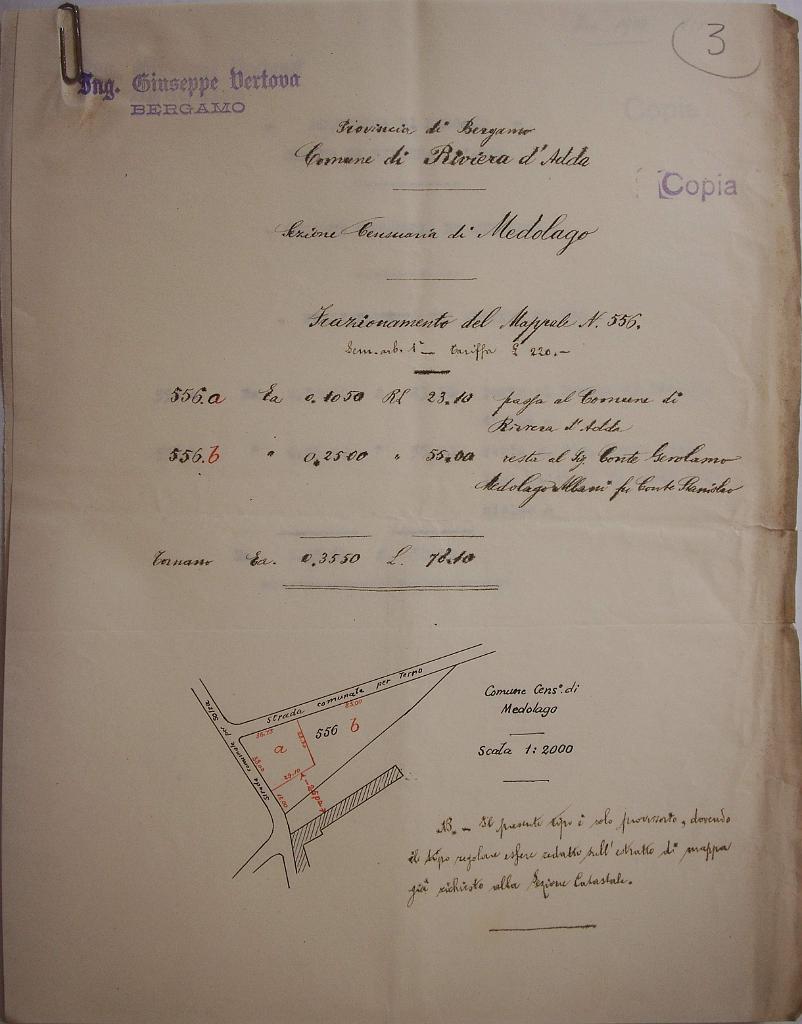 3
Ing. Giuseppe Vertova
BERGAMO
Provincia di Bergamo
Comune di Riviera d'Adda
Copia
Sezione Censuaria di Medolago
Frazionamento del Mappale N. 556.
Sem. arb. 1ª — tariffa £ 220.-
556.a Ea 0.1050 Rl 23.10 passa al Comune di
Riviera d'Adda
556.b " 0.2500 " 55.00 resta al Sig. Conte Gerolamo
Medolago Albani fu Conte Stanislao
Tornano Ea. 0.3550 L. 78.10
Strada comunale per Terno
Strada comunale per Solza
a
556 b
Comune Cens.º di
Medolago
Scala 1:2000
NB. - Il presente tipo è solo provvisorio, dovendo
il tipo regolare essere redatto sull'estratto di mappa
già richiesto alla Sezione Catastale.